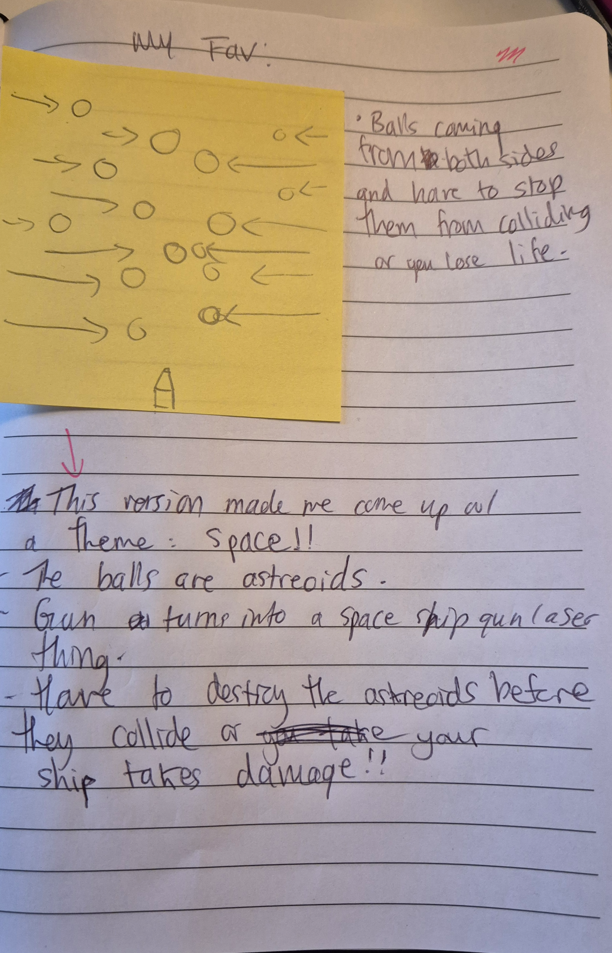 My Fav:
• Balls coming
from both sides
and have to stop
them from colliding
or you lose life.
This version made me come up w/
a theme: Space!!
- The balls are astreoids.
- Gun turns into a space ship gun laser
thing.
- Have to destroy the astreoids before
they collide or your
ship takes damage!!